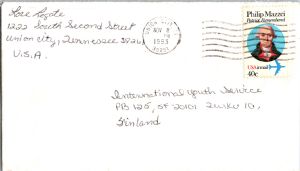 1222 South Second Street
Union City, Tennessee
U.S.A.
NOV 8
PM
1993
Philip Mazzei
Patriot Remembered
USAirmail
40c
International Youth Service
PB 125, SF 20101 Turku 10,
Finland